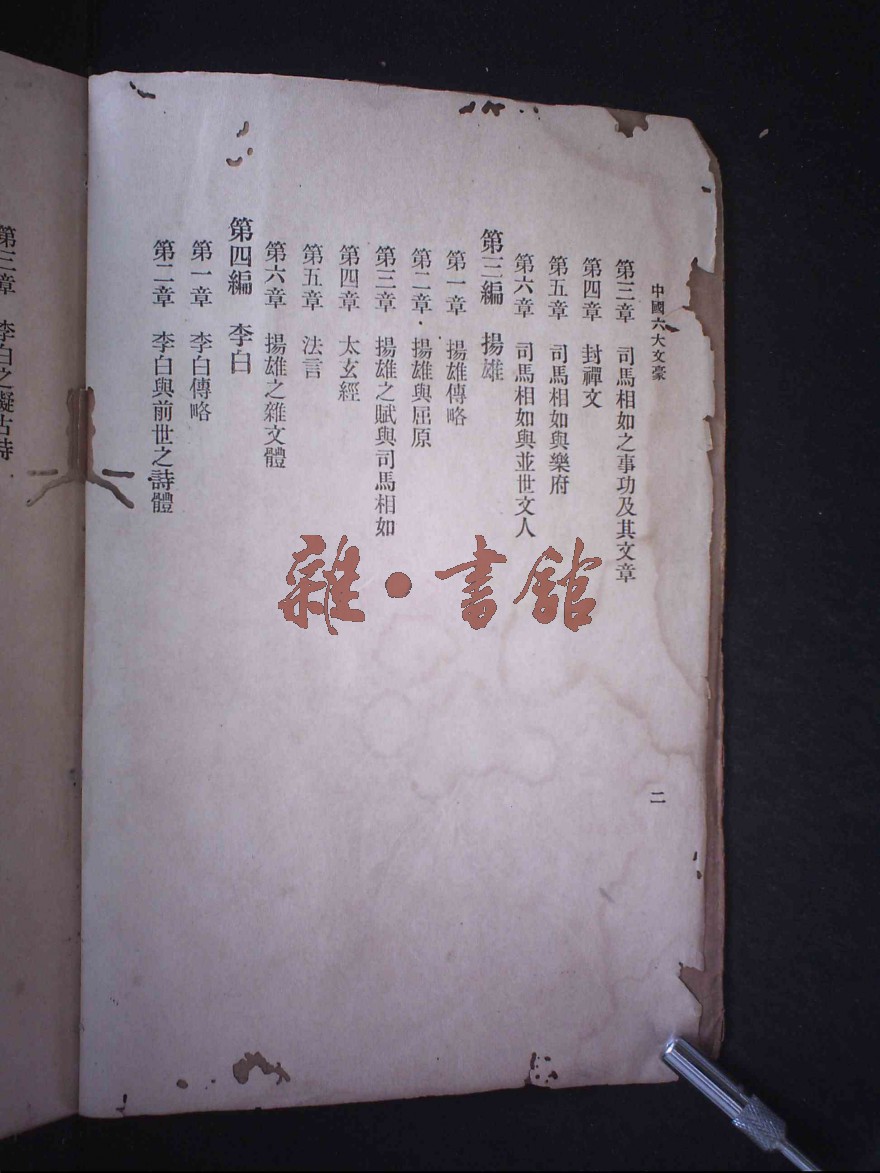 中國六大文豪
二
第三章 司馬相如之事功及其文章
第四章 封禪文
第五章 司馬相如與樂府
第六章 司馬相如與並世文人
第三編 揚雄
第一章 揚雄傳略
第二章 揚雄與屈原
第三章 揚雄之賦與司馬相如
第四章 太玄經
第五章 法言
第六章 揚雄之雜文體
第四編 李白
第一章 李白傳略
第二章 李白與前世之詩體
第三章 李白之擬古詩
雜·書館